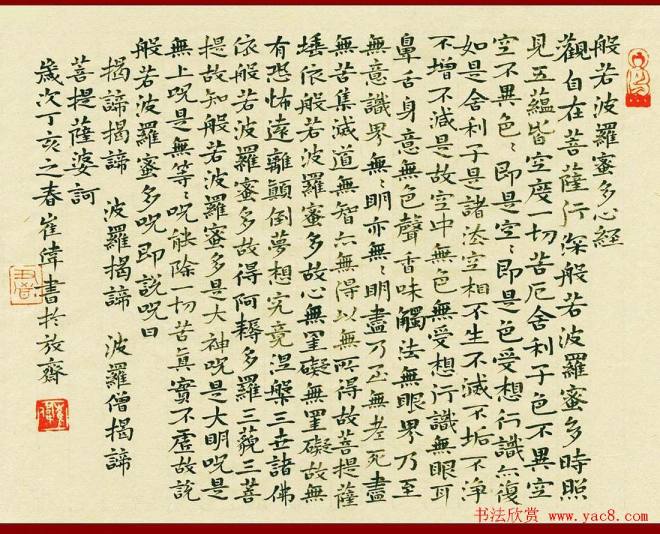 般若波羅蜜多心経
觀自在菩薩行深般若波羅蜜多時照
見五蘊皆空度一切苦厄舍利子色不異空
空不異色〻即是空〻即是色受想行識亦復
如是舍利子是諸法空相不生不滅不垢不淨
不增不減是故空中無色無受想行識無眼耳
鼻舌身意無色聲香味觸法無眼界乃至
無意識界無〻明亦無〻明盡乃至無老死盡
無苦集滅道無智亦無得以無所得故菩提薩
埵依般若波羅蜜多故心無罣礙無罣礙故無
有恐怖遠離顛倒夢想究竟涅槃三世諸佛
依般若波羅蜜多故得阿耨多羅三藐三菩
提故知般若波羅蜜多是大神呪是大明呪是
無上呪是無等〻呪能除一切苦真實不虛故說
般若波羅蜜多呪即說呪曰
揭諦揭諦 波羅揭諦 波羅僧揭諦
菩提薩婆訶
歲次丁亥之春崔偉書於放齋
书法欣赏 www.yac8.com